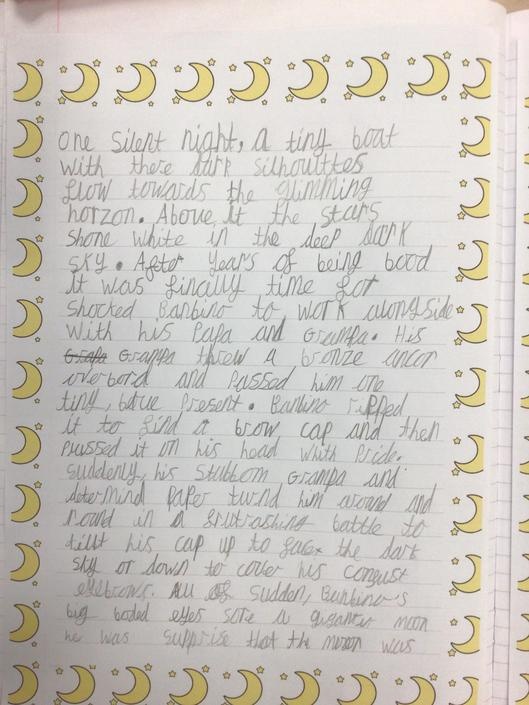 One silent night, a tiny boat
with there dark silhouttes
flow towards the glimming
horzon. Above it the stars
shone white in the deep dark
sky. After years of being bord
it was fincilly time for
shocted Banbino to work alongside
with his Papa and Grampa. His
Grapa Grampa threw a bronze ancor
overbord and passed him one
tiny, blue present. Banbino ripped
it to find a brow cap and then
prussed it on his head with pride.
suddenly, his stubbom Grampa and
determind Paper turnd him around and
round in a frutrashing battle to
tillt his cap up to face the dark
sky or down to cover his
eyebrows. All of sudden, Banbino's
big boded eyes sore a gigantes moon
he was supprise that the moon was